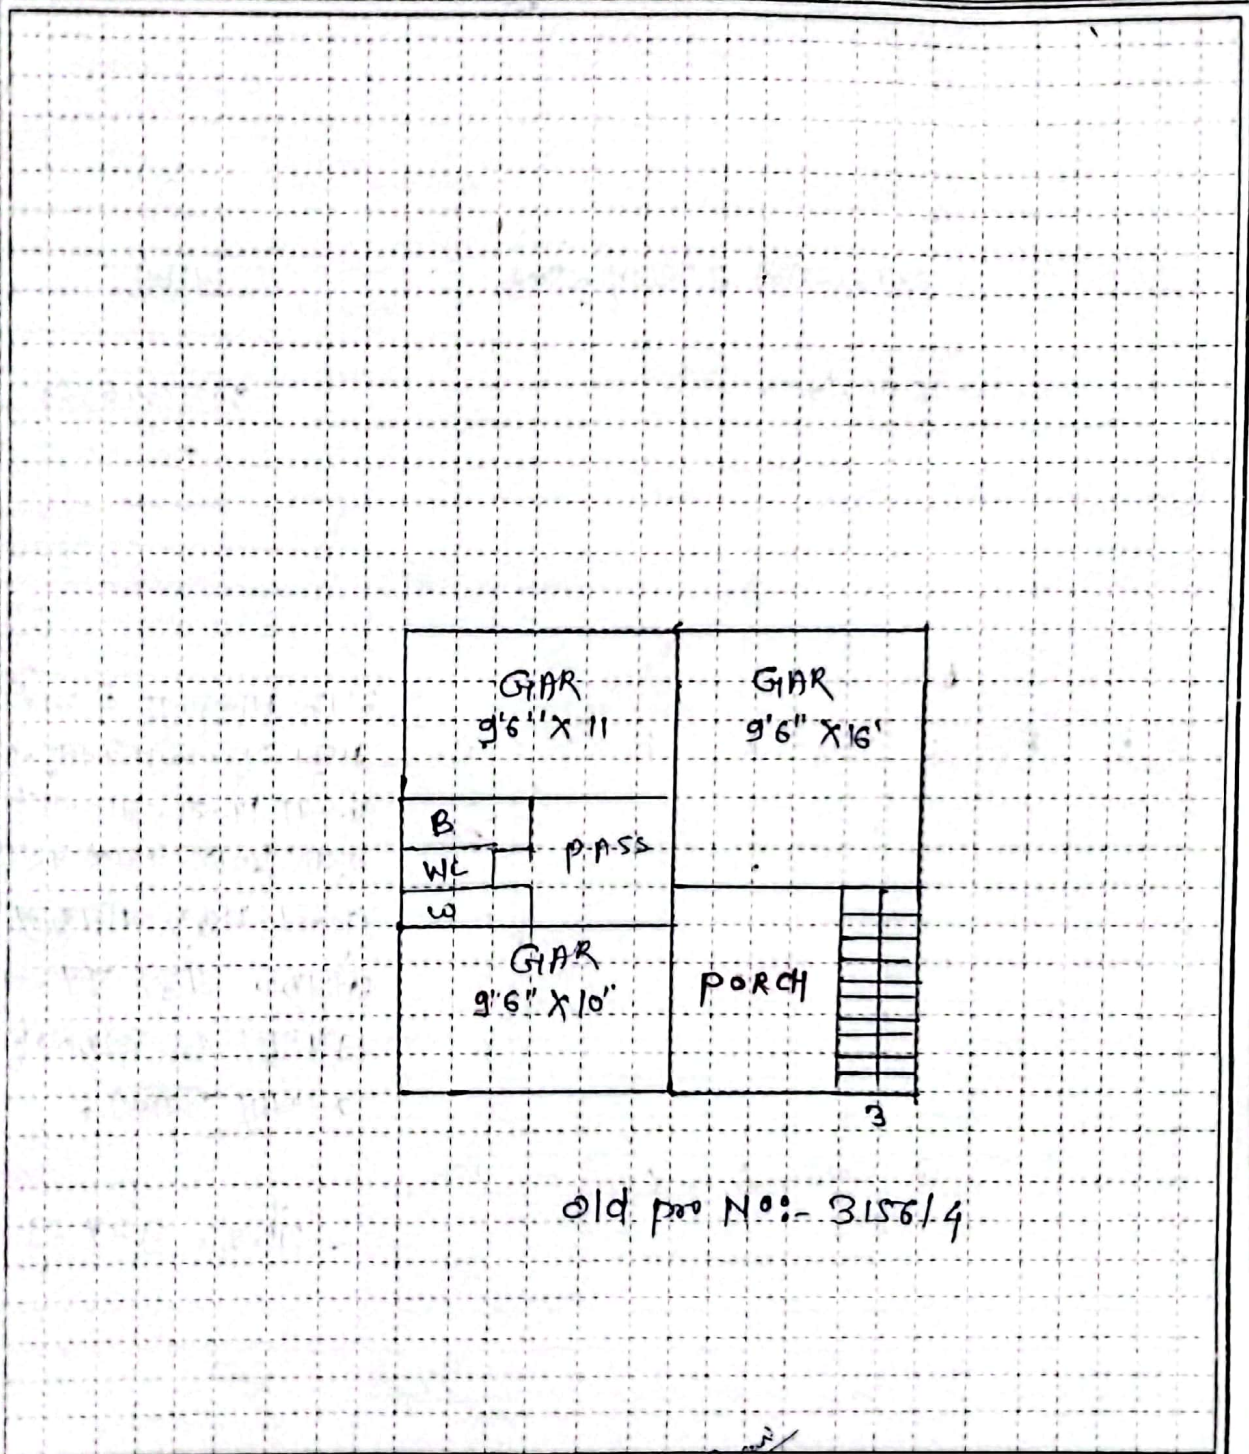 GAR
9'6'' X 11
GAR
9'6" X 16'
B
PASS
WC
W
GAR
9'6" X 10"
PORCH
3
Old pro No:- 3156/4